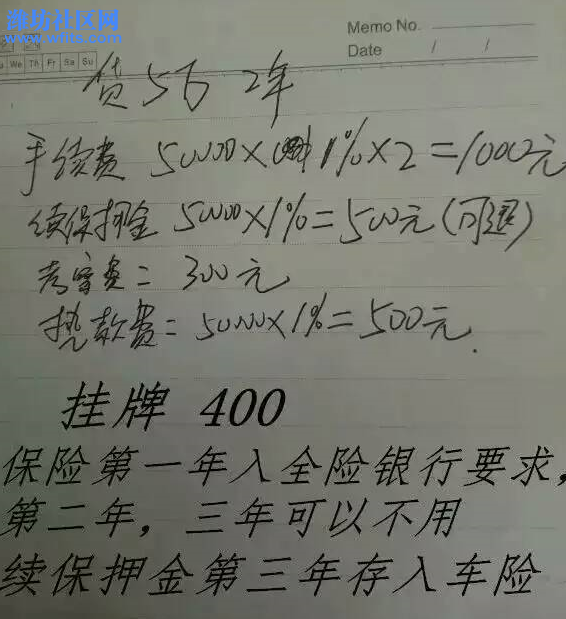 潍坊社区网
www.wfits.com
Memo No.
Date / /
We Th Fr Sa Su
贷5万 2年
手续费 50000×1%×2=1000元
续保押金 50000×1%=500元(可退)
考察费=300元
垫款费=50000×1%=500元.
挂牌 400
保险第一年入全险银行要求,
第二年,三年可以不用
续保押金第三年存入车险